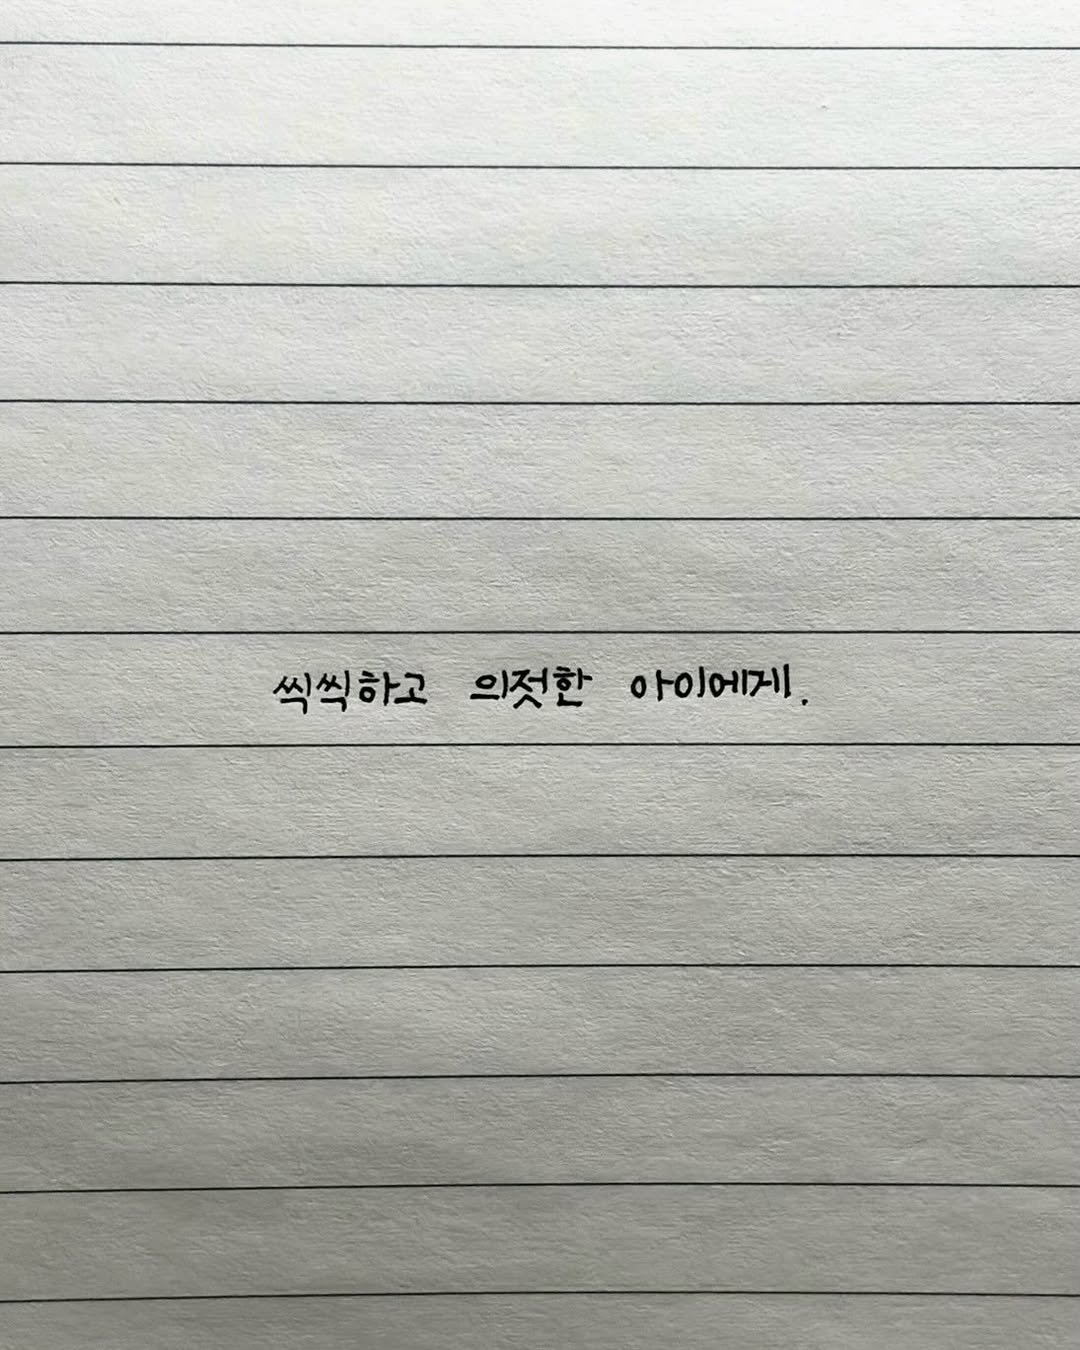 씩씩하고 의젓한 아이에게.